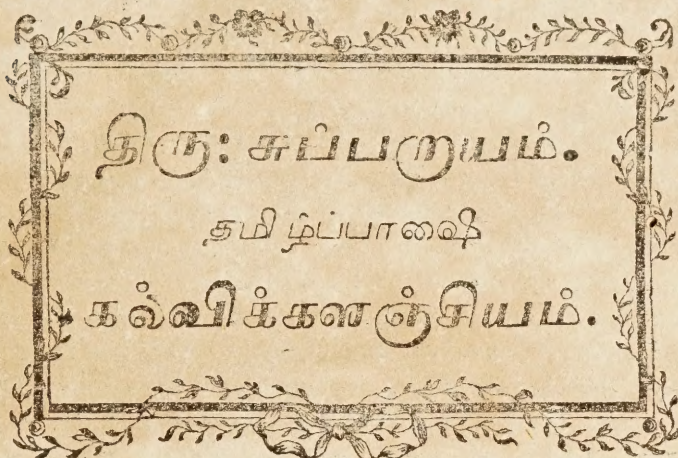 திரு: சுப்பறாயம்.
தமிழ்ப்பாஷை
கல்விக்களஞ்சியம்.